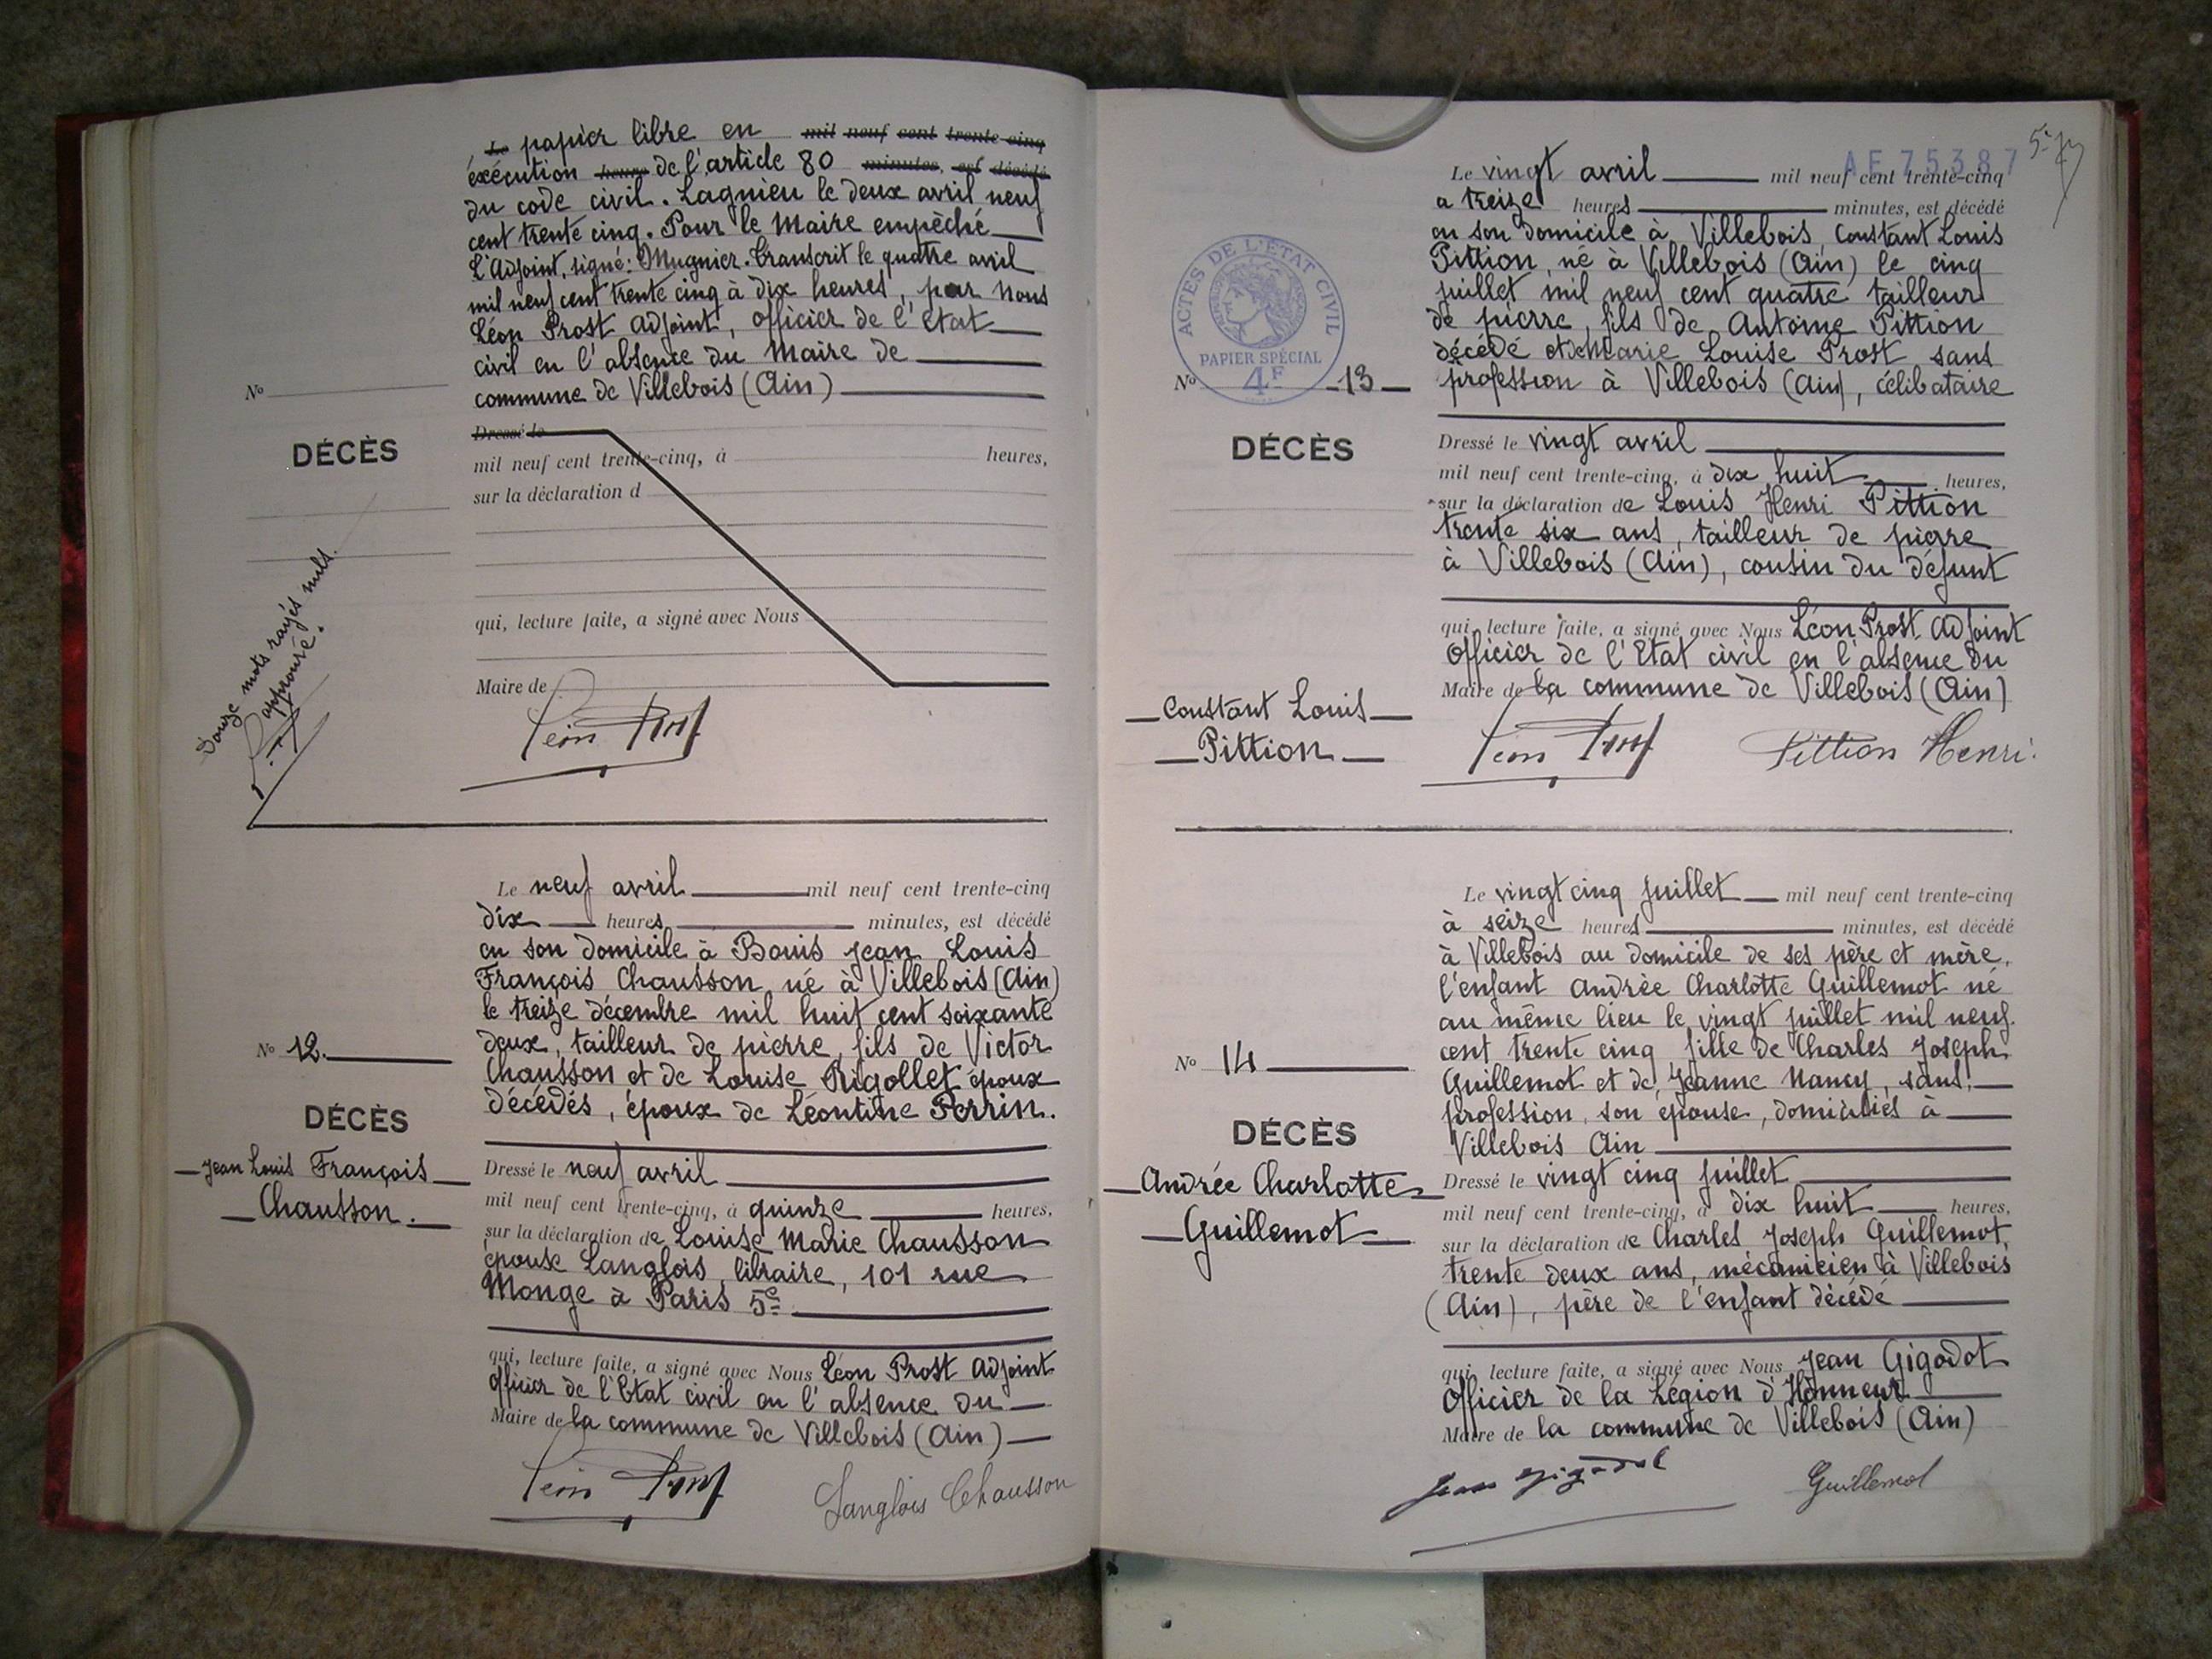 Le papier libre en mil neuf cent trente-cinq
éxécution heures de l'article 80 minutes, est décédé
du code civil. Lagnieu le deux avril neuf
cent trente cinq. Pour le Maire empêché
L'Adjoint, signé: Mugnier. Transcrit le quatre avril
mil neuf cent trente cinq à dix heures, par Nous
Léon Prost Adjoint, Officier de l'Etat
civil en l'absence du Maire de
commune de Villebois (Ain)
No
DÉCÈS
Dressé le
mil neuf cent trente-cinq, à heures,
sur la déclaration d
qui, lecture faite, a signé avec Nous
Maire de
Douze mots rayés nuls.
approuvé.
Léon Prost
Le neuf avril mil neuf cent trente-cinq
dix heures minutes, est décédé
en son domicile à Bouis Jean Louis
François Chausson, né à Villebois (Ain)
le treize décembre mil huit cent soixante
deux, tailleur de pierre, fils de Victor
Chausson et de Louise Rigollet époux
décédés, époux de Léontine Perrin.
No 12.
DÉCÈS
Jean Louis François
Chausson.
Dressé le neuf avril
mil neuf cent trente-cinq, à quinze heures,
sur la déclaration de Louise Marie Chausson
épouse Langlois, libraire, 101 rue
Monge à Paris 5e
qui, lecture faite, a signé avec Nous Léon Prost Adjoint
Officier de l'Etat civil en l'absence du
Maire de la commune de Villebois (Ain)
Léon Prost Langlois Chausson
AE 75387
Le vingt avril mil neuf cent trente-cinq
a treize heures minutes, est décédé
en son domicile à Villebois, Constant Louis
Pittion, né à Villebois (Ain) le cinq
juillet mil neuf cent quatre tailleur
de pierre, fils de Antoine Pittion
décédé et de Marie Louise Prost sans
profession à Villebois (Ain), célibataire
ACTES DE L'ÉTAT CIVIL
PAPIER SPÉCIAL
4F
No 13
DÉCÈS
Constant Louis
Pittion
Dressé le vingt avril
mil neuf cent trente-cinq, à dix huit heures,
sur la déclaration de Louis Henri Pittion
trente six ans, tailleur de pierre
à Villebois (Ain), cousin du défunt
qui, lecture faite, a signé avec Nous Léon Prost Adjoint
Officier de l'Etat civil en l'absence du
Maire de la commune de Villebois (Ain)
Léon Prost Pittion Henri.
Le vingt cinq juillet mil neuf cent trente-cinq
à seize heures minutes, est décédé
à Villebois au domicile de ses père et mère,
l'enfant Andrée Charlotte Guillemot né
au même lieu le vingt juillet mil neuf
cent trente cinq fille de Charles Joseph
Guillemot et de Jeanne Nancy, sans
profession, son épouse, domiciliés à
Villebois Ain
No 14
DÉCÈS
Andrée Charlotte
Guillemot
Dressé le vingt cinq juillet
mil neuf cent trente-cinq, à dix huit heures,
sur la déclaration de Charles Joseph Guillemot,
trente deux ans, mécanicien à Villebois
(Ain), père de l'enfant décédé
qui, lecture faite, a signé avec Nous Jean Gigodot
Officier de la Légion d'Honneur
Maire de la commune de Villebois (Ain)
Jean Gigodot Guillemot